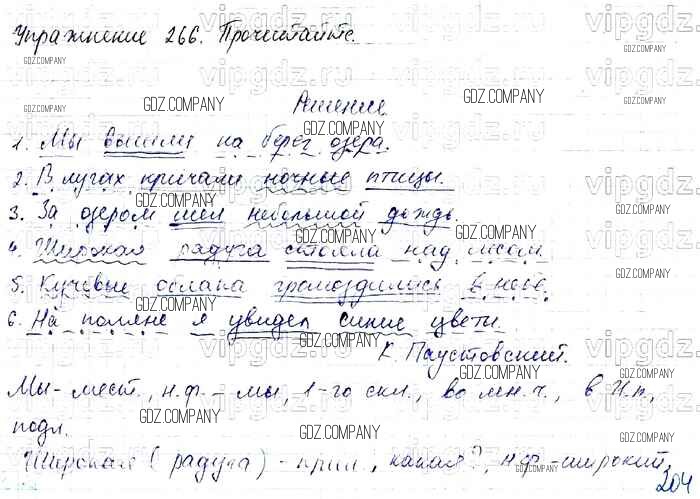 Упражнение 266. Прочитайте.
Решение
1. Мы вышли на берег озера.
2. В лугах кричали ночные птицы.
3. За озером шёл небольшой дождь.
4. Широкая радуга стояла над лесом.
5. Кучевые облака громоздились в небе.
6. На поляне я увидел синие цветы.
К. Паустовский.
Мы - мест., н.ф. - мы, 1-го скл., во мн.ч., в И.п.,
подл.
Широкая (радуга) - прил., какая?, н.ф - широкий,
204
GDZ.COMPANY
vipgdz.ru